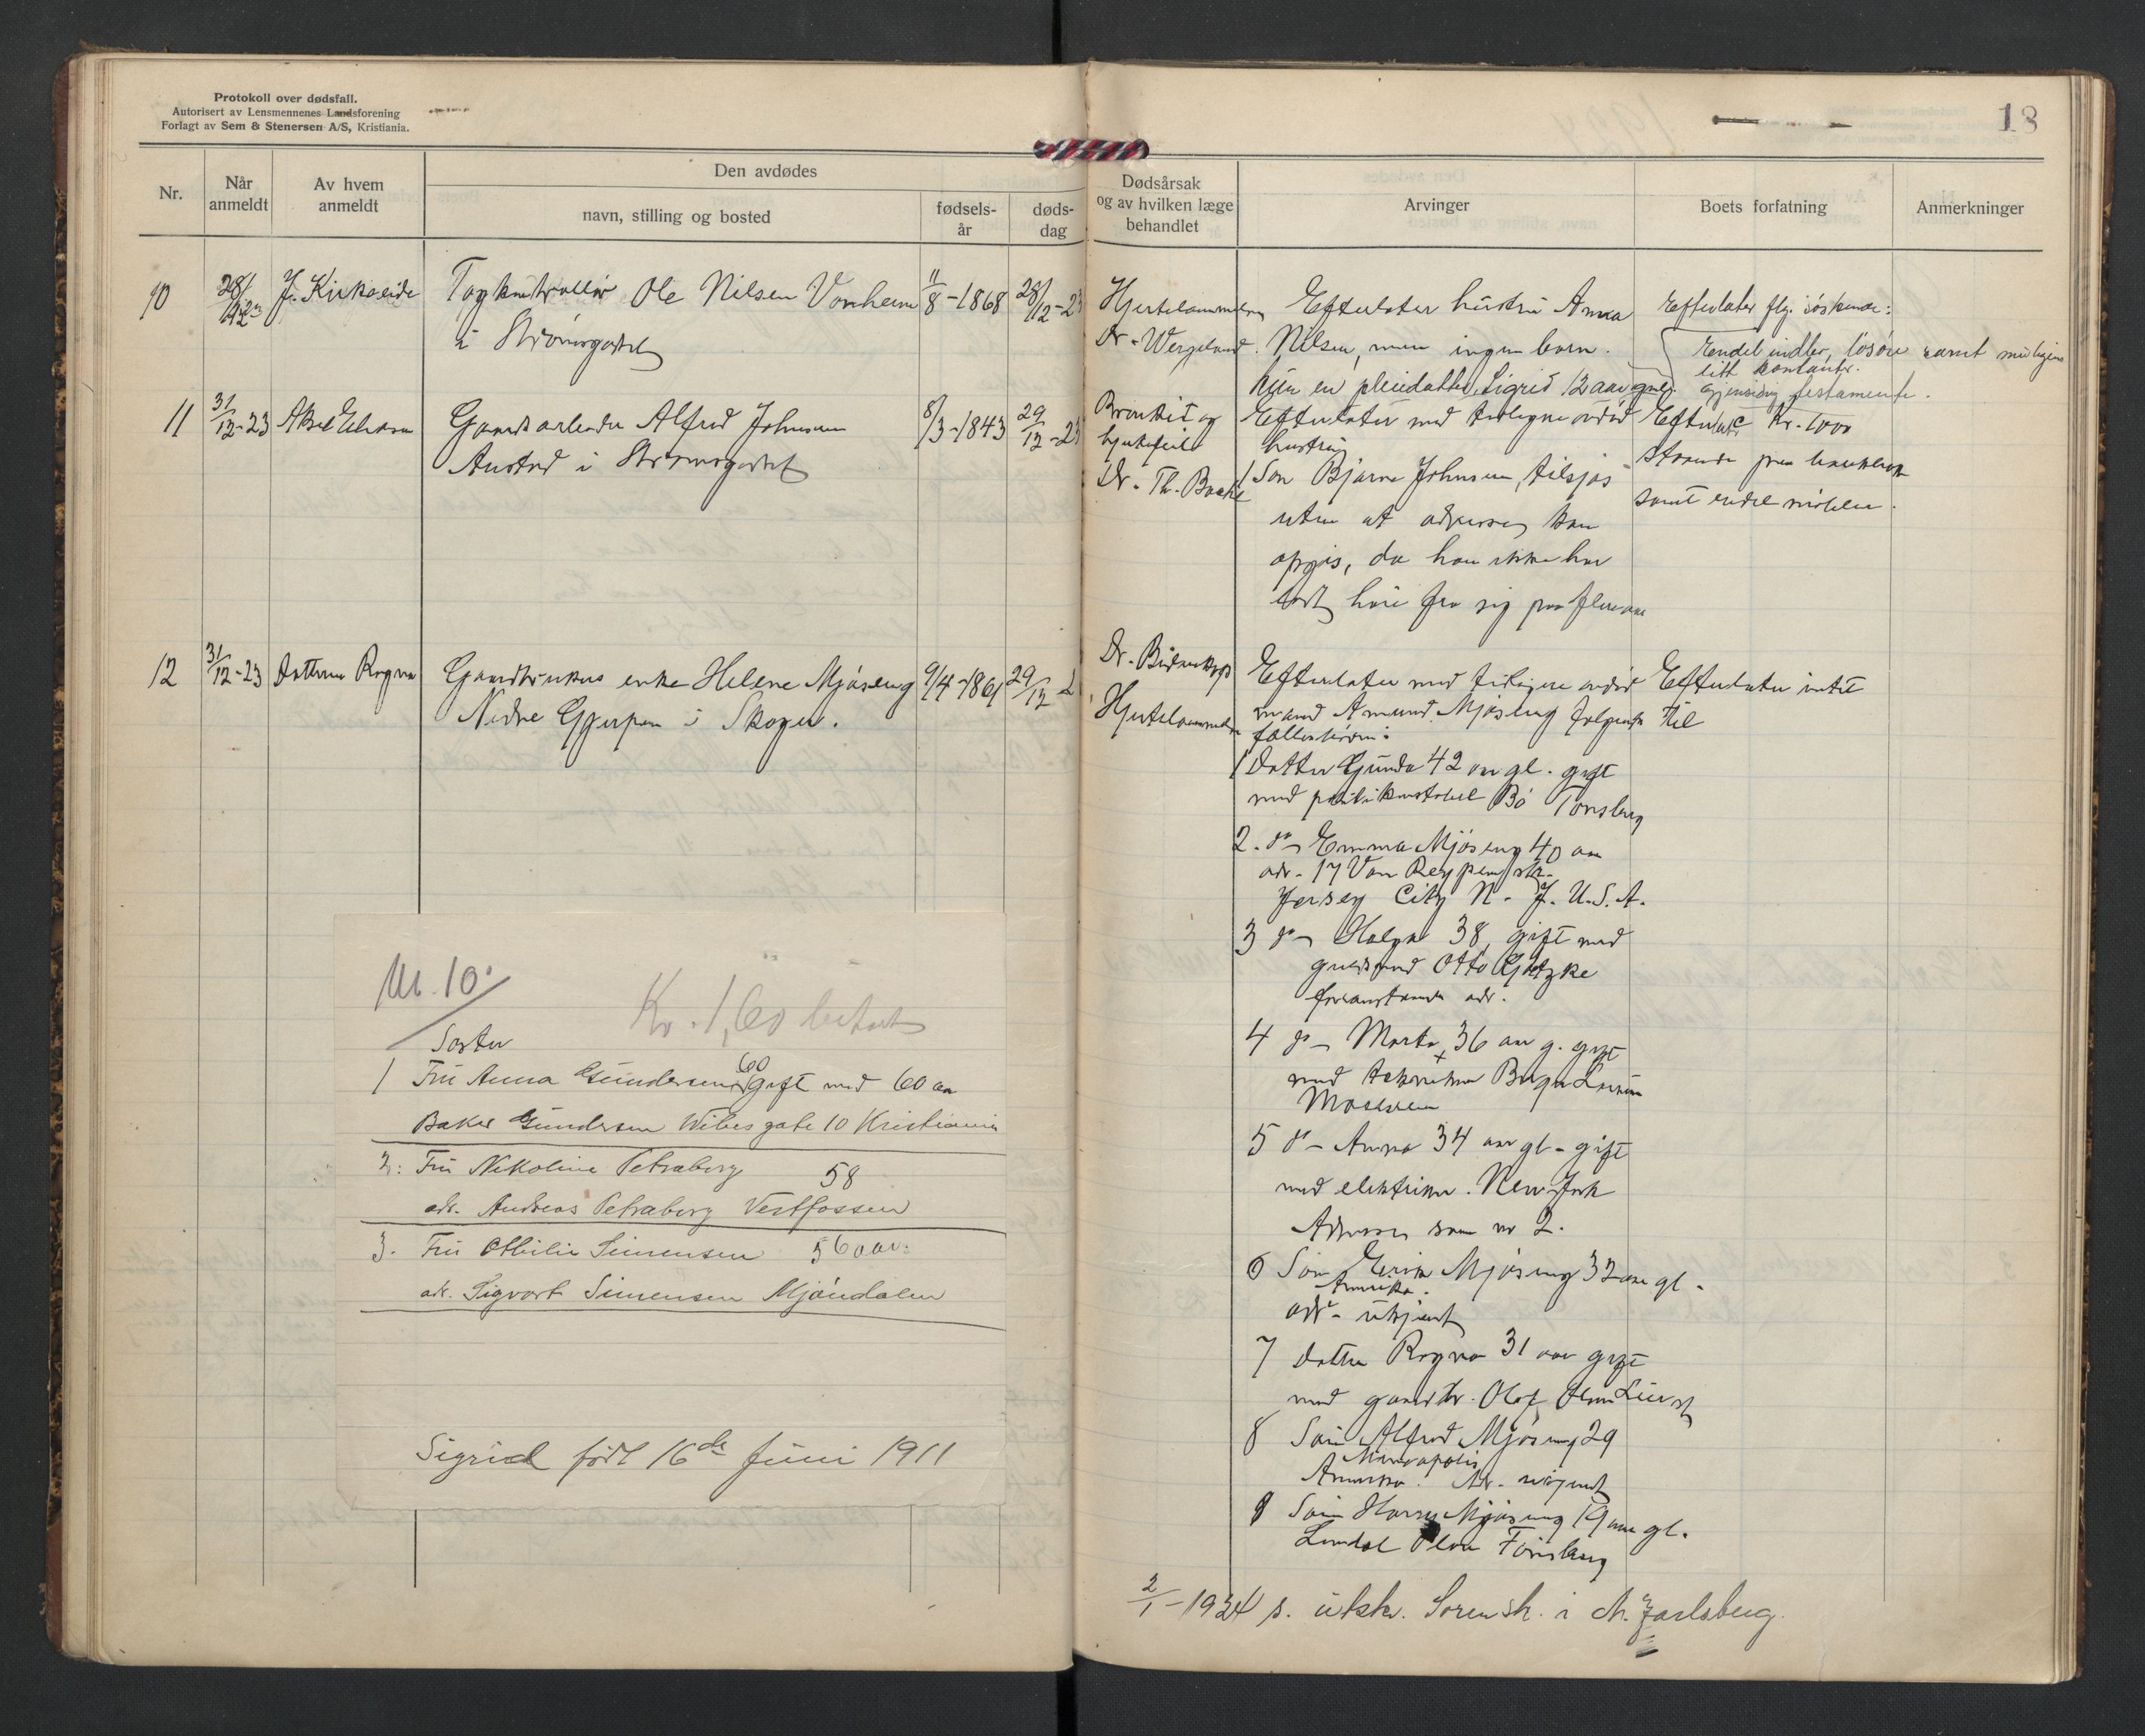 Protokoll over dødsfall.
Autorisert av Lensmennenes Landsforening
Forlagt av Sem & Stenersen A/S, Kristiania.
18
Nr.
Når anmeldt
Av hvem anmeldt
Den avdødes
navn, stilling og bosted
fødsels-år
døds-dag
Dødsårsak og av hvilken læge behandlet
Arvinger
Boets forfatning
Anmerkninger
10
28/12
J. Kirkseide
Togkontrollør Ole Nilsen Vonheim
i Strømsgodset
11/8-1868
28/12-23
Hjertelammelse
Dr. Wergeland
Efterlater hustru Anna
Nilsen, men ingen barn.
Kun en pleiedatter Sigrid 12 aar gml.
Efterlater flg. søskende:
Endel indbo, løsøre samt muligens
litt kontanter.
Gjensidig testamente.
11
31/12-23
Aksel
Gaardsarbeider Alfred Johnsen
Austad i Strømsgodset
8/3-1843
29/12-23
Bronkit og
hjertefeil
Dr. Th.
Efterlater med tidligere avdød
hustru
1 Søn Bjarne Johnsen, tilsjøs
uten at adressen kan
opgis, da han ikke har
latt høre fra sig paa flere aar
Efterlatt Kr. 1000
staaende paa bankbok
samt endel møbler.
12
31/12-23
Datteren Ragna
Gaardbrukers enke Helene Mjøseng
Nedre Gjerpen i Skoger.
9/4-1861
29/12
Dr.
Hjertelammelse
Efterlater med tidligere avdød
mand Amund Mjøseng følgende
fællesbørn:
Efterlater intet
til
1 Datter Gunda 42 aar gl. gift
med politikonstabel Bø Tønsberg
2. do Emma Mjøseng 40 aar
adr. 17 Van Reypen str.
Jersey City N. J. U.S.A.
3 do Helga 38, gift med
Otto
foranstaaende adr.
4 do Marta 36 aar g. gift
med
5 do Anna 34 aar gl. gift
med elektriker. New York
Adresse som nr 2.
6 Søn Mjøseng 32 aar gl.
Amerika.
adr. ukjent
7 Datter Ragna 31 aar gift
med gaardbr. Olaf
8 Søn Alfred Mjøseng 29
Minneapolis
Amerika. Adr. ukjendt
9 Søn Harry Mjøseng 19 aar gl.
Tønsberg
2/1-1924 s. utskr. Sorensk. i N. Jarlsberg.
Nr. 10.
Kr. 1,60 betalt
Søster
60
1 Fru Anna Gundersen gift med 60 aar
Baker Gundersen Wibes gate 10 Kristiania
2: Fru Nikoline Petraborg 58
adr. Andreas Petraborg Vestfossen
3. Fru Othilie Simensen 56 aar.
adr. Sigvart Simensen Mjøndalen
Sigrid født 16de Juni 1911